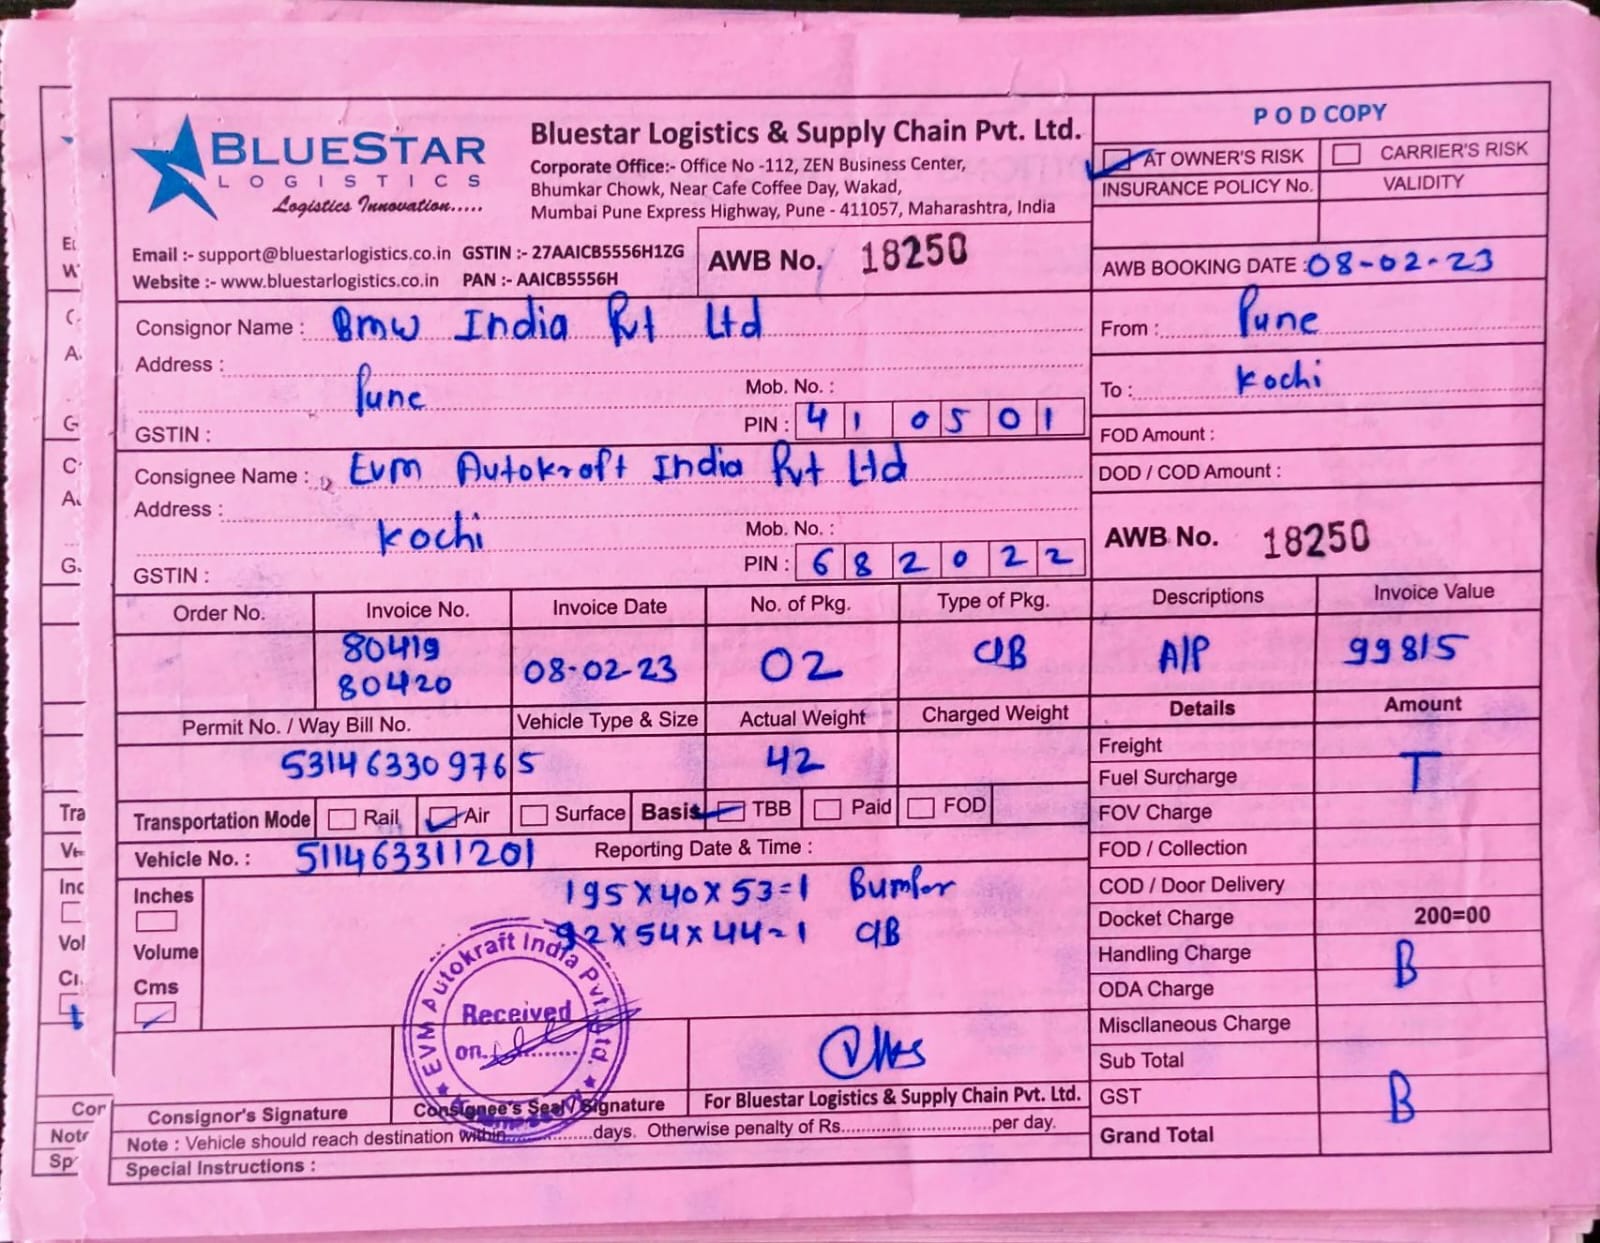 BLUESTAR
LOGISTICS
Logistics Innovation.....
Bluestar Logistics & Supply Chain Pvt. Ltd.
Corporate Office:- Office No -112, ZEN Business Center,
Bhumkar Chowk, Near Cafe Coffee Day, Wakad,
Mumbai Pune Express Highway, Pune - 411057, Maharashtra, India
Email :- support@bluestarlogistics.co.in GSTIN :- 27AAICB5556H1ZG
Website :- www.bluestarlogistics.co.in PAN :- AAICB5556H
AWB No. 18250
POD COPY
AT OWNER'S RISK CARRIER'S RISK
INSURANCE POLICY No. VALIDITY
AWB BOOKING DATE : 08-02-23
Consignor Name : Bmw India Pvt Ltd
Address :
Pune Mob. No. :
GSTIN : PIN : 410501
From : Pune
To : Kochi
FOD Amount :
DOD / COD Amount :
Consignee Name : Evm Autokraft India Pvt Ltd
Address :
Kochi Mob. No. :
GSTIN : PIN : 682022
AWB No. 18250
Order No. Invoice No. Invoice Date No. of Pkg. Type of Pkg. Descriptions Invoice Value
80419
80420 08-02-23 02 C/B A/P 99815
Permit No. / Way Bill No. Vehicle Type & Size Actual Weight Charged Weight Details Amount
531463309765 42
Transportation Mode Rail Air Surface Basis TBB Paid FOD
Vehicle No. : 511463311201 Reporting Date & Time :
Inches
Volume
Cms
195x40x53=1 Bumper
92x54x44=1 C/B
Freight
Fuel Surcharge T
FOV Charge
FOD / Collection
COD / Door Delivery
Docket Charge 200=00
Handling Charge B
ODA Charge
Miscllaneous Charge
Sub Total
GST B
Grand Total
EVM Autokraft India Pvt. Ltd.
Received
on
Consignor's Signature Consignee's Seal / Signature For Bluestar Logistics & Supply Chain Pvt. Ltd.
Note : Vehicle should reach destination within..............days. Otherwise penalty of Rs..........................per day.
Special Instructions :